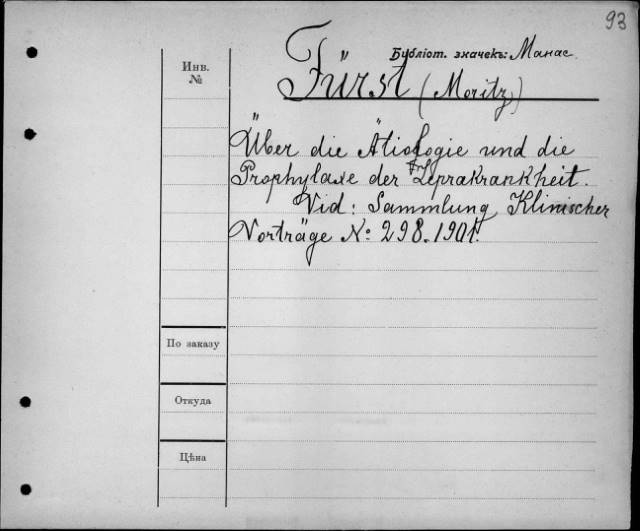 93
Библіот. значекъ: Манас.
Инв.
№
Fürst (Moritz)
Über die Ätiologie und die
Prophylaxe der Leprakrankheit.
Vid: Sammlung Klinischer
Vorträge № 298. 1901.
По заказу
Откуда
Цѣна